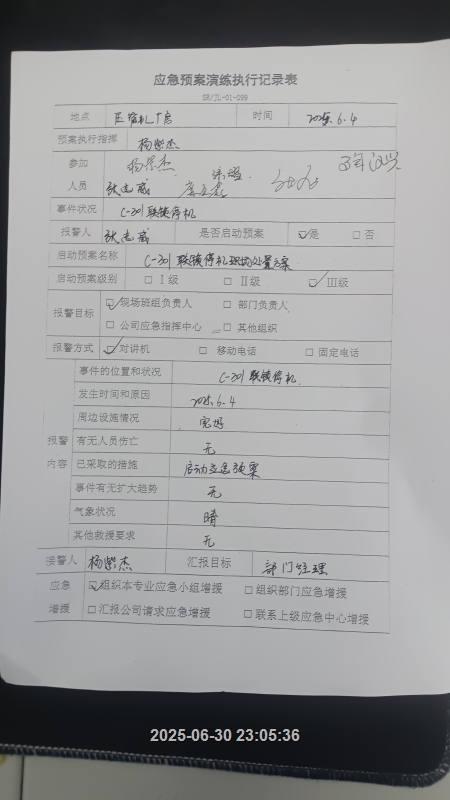 应急预案演练执行记录表
SH/JL-01-099
地点 压缩机厂房 时间 2025.6.4
预案执行指挥 杨紫杰
参加 杨紫杰
人员 张志威
事件状况 C-301联锁停机
报警人 张志威 是否启动预案 ☑是 □否
启动预案名称 C-301联锁停机现场处置方案
启动预案级别 □Ⅰ级 □Ⅱ级 ☑Ⅲ级
报警目标 ☑现场班组负责人 □部门负责人
□公司应急指挥中心 □其他组织
报警方式 ☑对讲机 □移动电话 □固定电话
事件的位置和状况 C-301联锁停机
发生时间和原因 2025.6.4
周边设施情况 完好
报警 有无人员伤亡 无
内容 已采取的措施 启动应急预案
事件有无扩大趋势 无
气象状况 晴
其他救援要求 无
接警人 杨紫杰 汇报目标 部门经理
应急 ☑组织本专业应急小组增援 □组织部门应急增援
增援 □汇报公司请求应急增援 □联系上级应急中心增援
2025-06-30 23:05:36